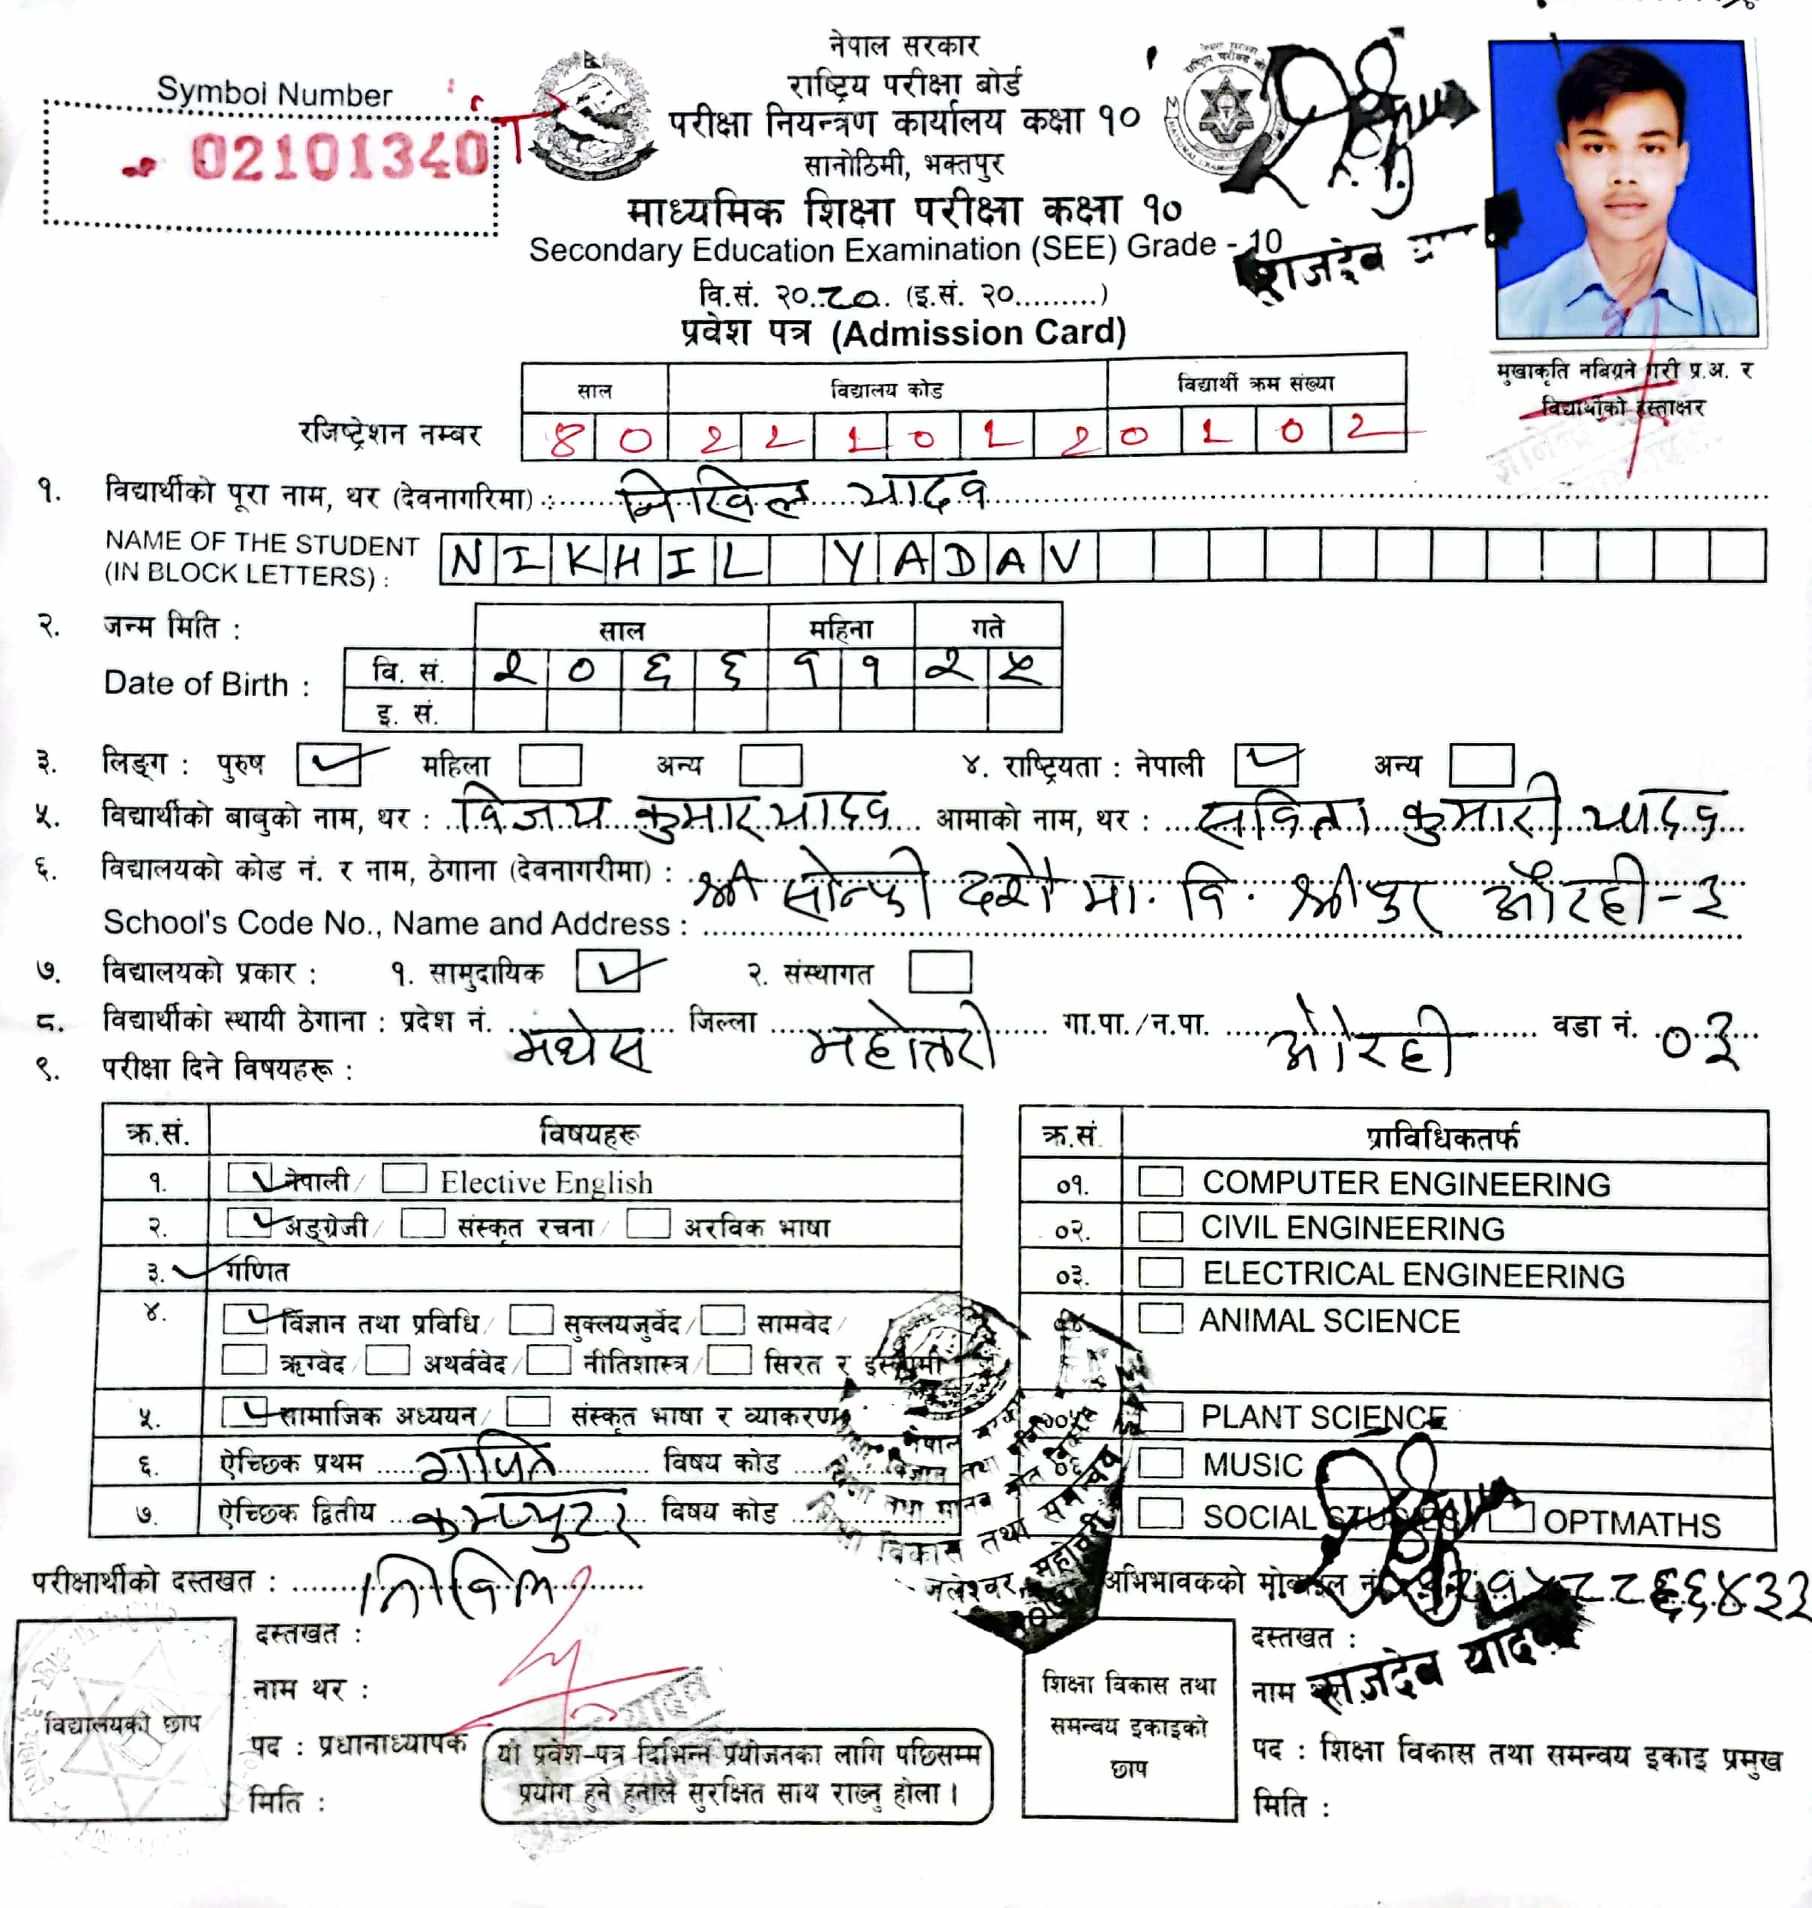 नेपाल सरकार
राष्ट्रिय परीक्षा बोर्ड
परीक्षा नियन्त्रण कार्यालय कक्षा १०
सानोठिमी, भक्तपुर
माध्यमिक शिक्षा परीक्षा कक्षा १०
Secondary Education Examination (SEE) Grade - 10
वि.सं. २०..८०. (इ.सं. २०.........)
प्रवेश पत्र (Admission Card)
Symbol Number
02101340 T
राजदेव
मुखाकृति नबिग्रने गरी प्र.अ. र
विद्यार्थीको हस्ताक्षर
साल विद्यालय कोड विद्यार्थी क्रम संख्या
रजिष्ट्रेशन नम्बर 8 0 2 2 1 0 1 2 0 1 0 2
१. विद्यार्थीको पूरा नाम, थर (देवनागरिमा) : निखिल यादव
NAME OF THE STUDENT
(IN BLOCK LETTERS) : NIKHIL YADAV
२. जन्म मिति : साल महिना गते
Date of Birth : वि. सं. २ ० ६ ६ १ १ २ ५
इ. सं.
३. लिङ्ग : पुरुष महिला अन्य ४. राष्ट्रियता : नेपाली अन्य
५. विद्यार्थीको बाबुको नाम, थर : विजय कुमार यादव आमाको नाम, थर : सविता कुमारी यादव
६. विद्यालयको कोड नं. र नाम, ठेगाना (देवनागरीमा) : श्री सोन्फी दशौ मा. वि. श्रीपुर औरही-३
School's Code No., Name and Address :
७. विद्यालयको प्रकार : १. सामुदायिक २. संस्थागत
८. विद्यार्थीको स्थायी ठेगाना : प्रदेश नं. मधेस जिल्ला महोत्तरी गा.पा./न.पा. औरही वडा नं. ०३
९. परीक्षा दिने विषयहरू :
क्र.सं. विषयहरू
१. नेपाली / Elective English
२. अङ्ग्रेजी / संस्कृत रचना / अरविक भाषा
३. गणित
४. विज्ञान तथा प्रविधि / सुक्लयजुर्वेद / सामवेद /
ऋग्वेद / अथर्ववेद / नीतिशास्त्र / सिरत र
५. सामाजिक अध्ययन / संस्कृत भाषा र व्याकरण
६. ऐच्छिक प्रथम गणित विषय कोड
७. ऐच्छिक द्वितीय कम्प्युटर विषय कोड
क्र.सं प्राविधिकतर्फ
०१. COMPUTER ENGINEERING
०२. CIVIL ENGINEERING
०३. ELECTRICAL ENGINEERING
ANIMAL SCIENCE
PLANT SCIENCE
०६ MUSIC
SOCIAL STUDIES / OPTMATHS
नेपाल
शिक्षा विकास तथा समन्वय
जलेश्वर, महोत्तरी
परीक्षार्थीको दस्तखत : निखिल
अभिभावकको मोबाइल नं.
दस्तखत :
नाम थर :
पद : प्रधानाध्यापक
मिति :
विद्यालयको छाप
यो प्रवेश-पत्र विभिन्न प्रयोजनका लागि पछिसम्म
प्रयोग हुने हुनाले सुरक्षित साथ राख्नु होला ।
शिक्षा विकास तथा
समन्वय इकाइको
छाप
दस्तखत :
नाम राजदेव यादव
पद : शिक्षा विकास तथा समन्वय इकाइ प्रमुख
मिति :